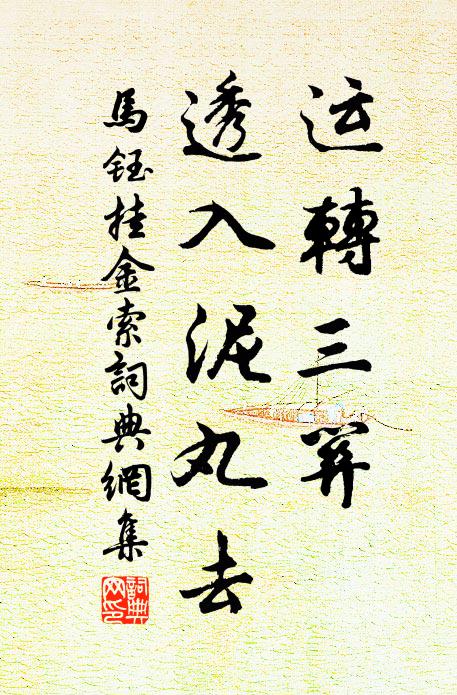 运轉三關
透入泥丸去
馬鈺挂金索詞典網集
詞典
网印